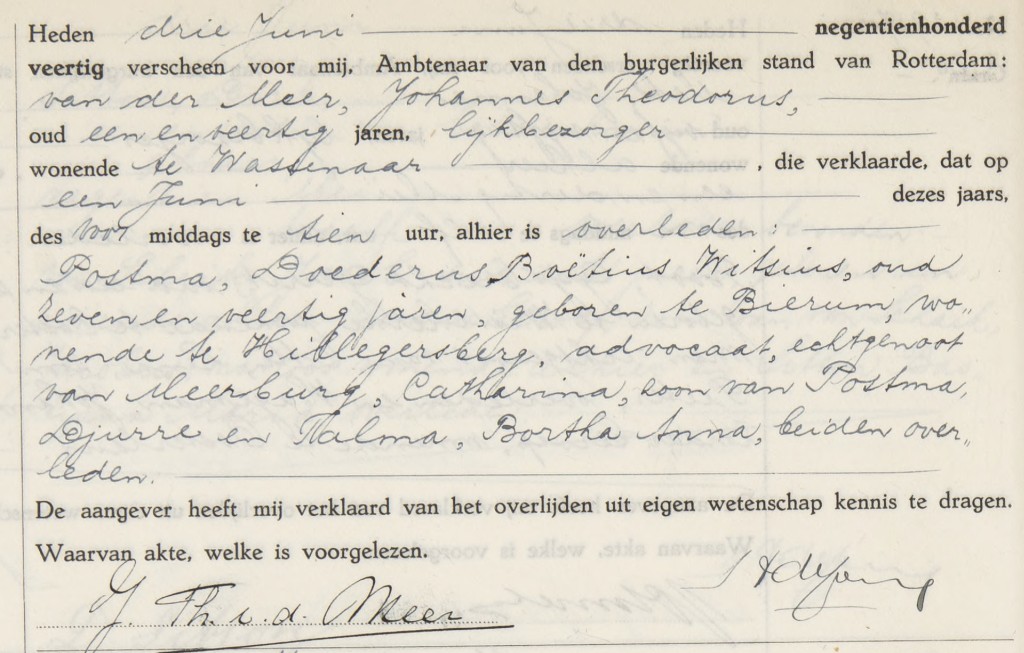 Heden drie Juni negentienhonderd
veertig verscheen voor mij, Ambtenaar van den burgerlijken stand van Rotterdam:
van der Meer, Johannes Theodorus,
oud een en veertig jaren, lijkbezorger
wonende te Wassenaar , die verklaarde, dat op
een Juni dezes jaars,
des voor middags te tien uur, alhier is overleden:
Postma, Doederus Boëtius Witsius, oud
zeven en veertig jaren, geboren te Bierum, wo„
nende te Hillegersberg, advocaat, echtgenoot
van Meerburg, Catharina, zoon van Postma,
Djurre en Talma, Bertha Anna, beiden over„
leden.
De aangever heeft mij verklaard van het overlijden uit eigen wetenschap kennis te dragen.
Waarvan akte, welke is voorgelezen.
J. Th. v. d. Meer